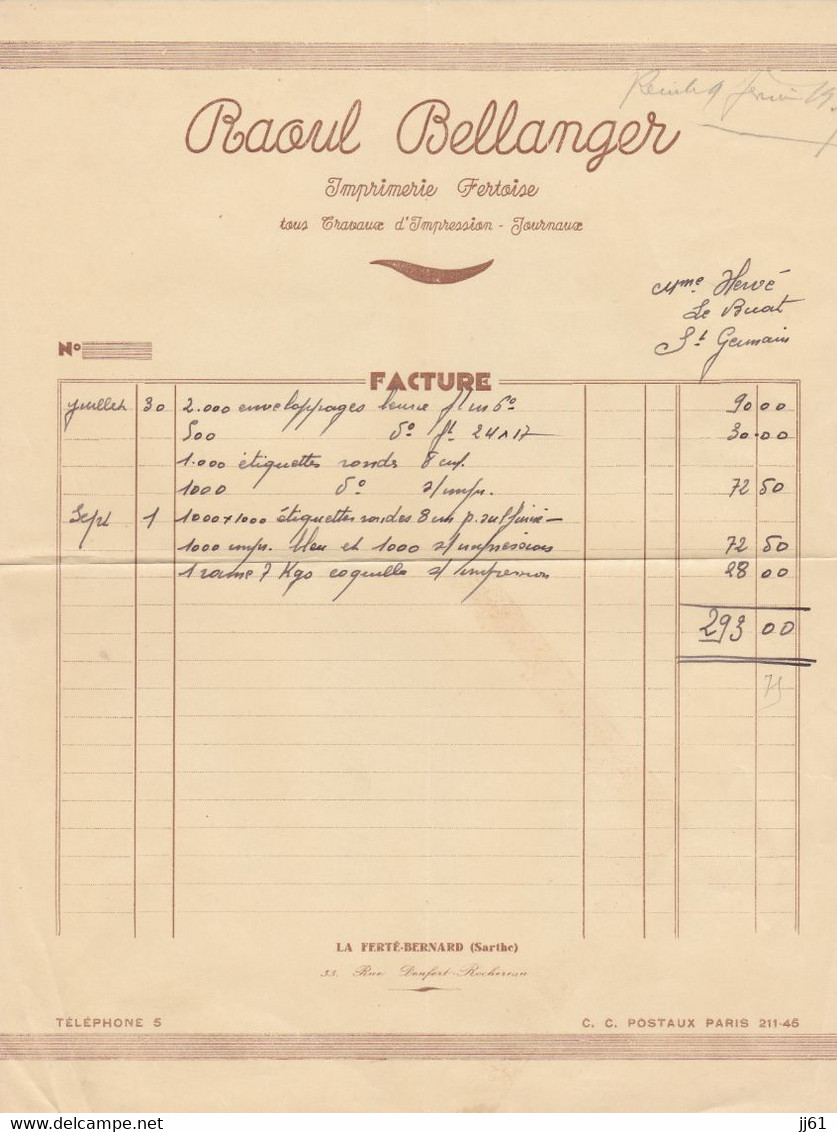 Raoul Bellanger
Imprimerie Fertoise
tous Travaux d'Impression - Journaux
Mme Hervé
Le Buat
St Germain
No
FACTURE
juillet 30 2.000 enveloppages beurre 90 00
500 do ft 24 x 17 30.00
1.000 étiquettes rondes 8 cm.
1000 do s/impr. 72 50
Sept 1 1000 x 1000 étiquettes rondes 8 cm p. sulfurisé -
1000 impr. bleu et 1000 s/impressions 72 50
1 rame 7 Kgs coquille s/ impression 28 00
293 00
LA FERTÉ-BERNARD (Sarthe)
33, Rue Denfert-Rochereau
TÉLÉPHONE 5
C. C. POSTAUX PARIS 211-45
www.delcampe.net
jj61